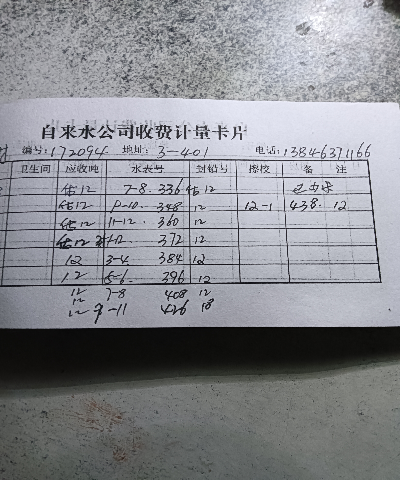 自来水公司收费计量卡片
编号:172094 地址: 3-401 电话:13846371166
卫生间 应收吨 水表号 封铅号 擦校 备 注
估12 7-8 336 估12
估12 9-10 348 12 12-1 438 12
估12 11-12 360 12
估12 372 12
12 3-4 384 12
12 5-6 396 12
12 7-8 408 12
12 9-11 426 18